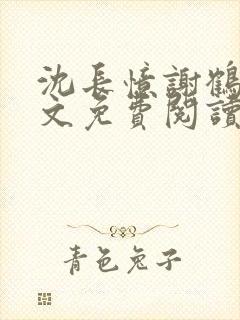 沈長憶謝鶴
文免費閱讀
青色兔子